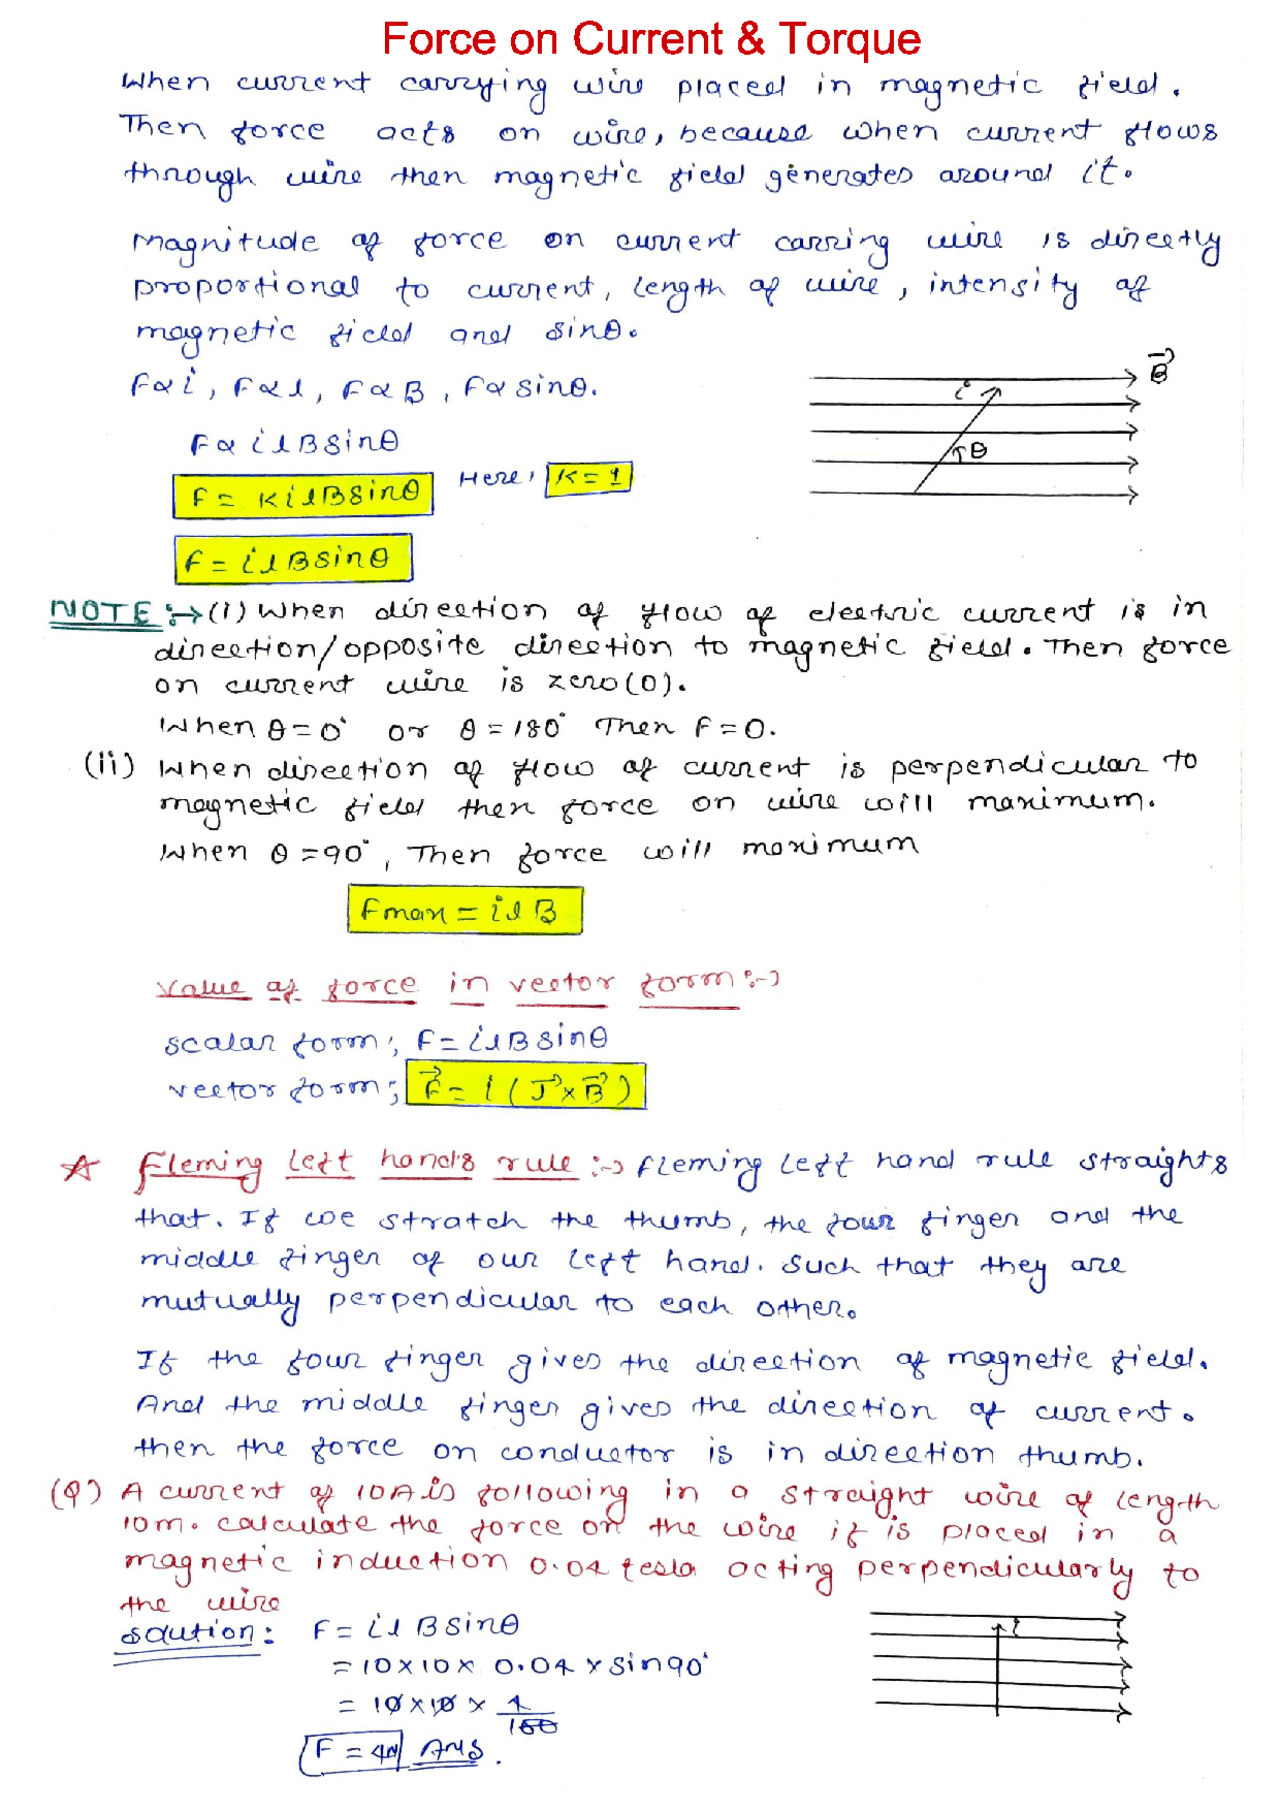 Force on Current & Torque
When current carrying wire placed in magnetic field.
Then force acts on wire, because when current flows
through wire then magnetic field generates around it.
Magnitude of force on current carring wire is directly
proportional to current, length of wire, intensity of
magnetic field and sinθ.
F∝i, F∝l, F∝B, F∝sinθ.
B⃗
i
θ
F∝ilBsinθ
F = KilBsinθ Here, K=1
F = ilBsinθ
NOTE :→ (i) When direction of flow of electric current is in
direction/opposite direction to magnetic field. Then force
on current wire is zero(0).
When θ=0° or θ=180° Then F=0.
(ii) When direction of flow of current is perpendicular to
magnetic field then force on wire will maximum.
When θ=90°, Then force will maximum
Fmax = ilB
Value of force in vector form:→
scalar form; F = ilBsinθ
vector form; F⃗ = i(l⃗×B⃗)
☆ Fleming left hand's rule :→ Fleming left hand rule straights
that. If we stratch the thumb, the four finger and the
middle finger of our left hand. Such that they are
mutually perpendicular to each other.
If the four finger gives the direction of magnetic field.
And the middle finger gives the direction of current.
then the force on conductor is in direction thumb.
(Q) A current of 10A is following in a straight wire of length
10m. calculate the force on the wire if is placed in a
magnetic induction 0.04 tesla acting perpendicularly to
the wire
solution: F = ilBsinθ
i
= 10×10× 0.04 × sin90°
= 10×10 × 4/100
F = 4N Ans.